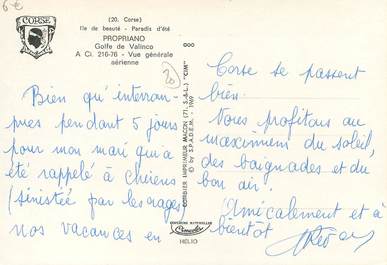 6 €
CORSE
(20. Corse)
Ile de beauté - Paradis d'été
PROPRIANO
Golfe de Valinco
A Ci. 216-76 - Vue générale
aérienne
20
COMBIER IMPRIMEUR MACON (71. S.-&-L.) "CIM"
© by S.P.A.D.E.M. 1969
Bien qu'interrom-
pues pendant 5 jours
pour mon mari qui a
été rappelé à Chirens
(sinistrée par les orages)
nos vacances en
Corse se passent
bien.
Nous profitons au
maximum du soleil,
des baignades et du
bon air !
Amicalement et à
bientôt
HELIO